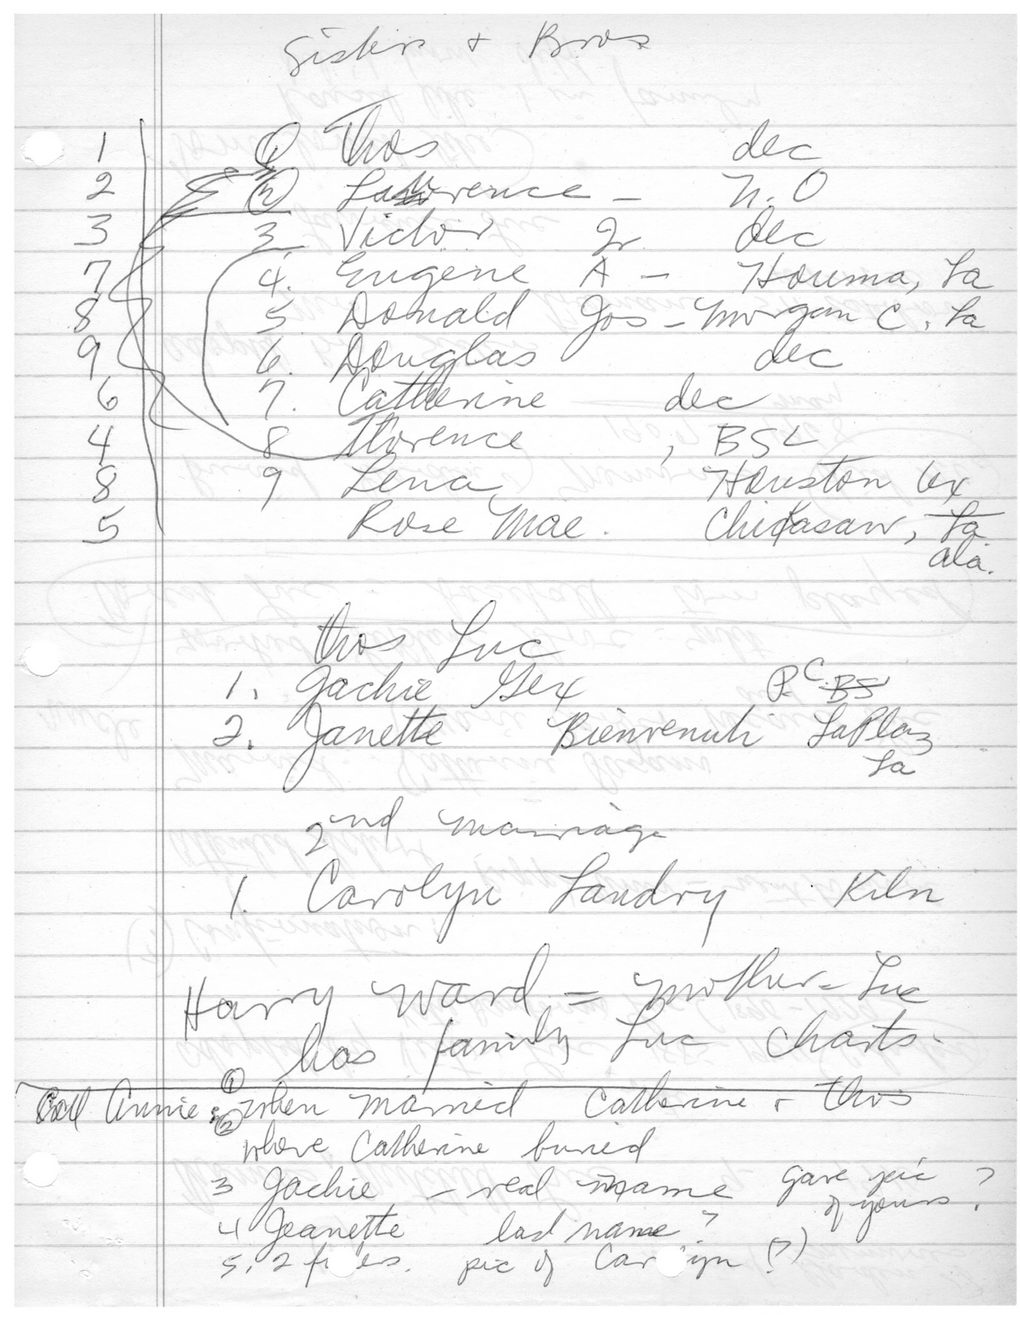 Sisters + Bros
1 ① Thos dec
2 ② Lawrence - N.O
3 3 Victor Jr dec
7 4. Eugene A - Houma, La
8 5 Donald Jos - Morgan C, La
9 6. Douglas dec
6 7. Catherine dec
4 8 Florence , BSL
8 9 Lena Houston Tex
5 Rose Mae. Chickasaw, La
ala.
Thos Luc
1. Jackie Gex P C BS
2. Janette Bienvenuh LaPlaz
La
2nd marriage
1. Carolyn Landry Kiln
Harry Ward = mother = Luc
has family Luc charts.
Call Annie: ① when married Catherine & Thos
② where Catherine buried
3 Jackie - real name gave pic of yours?
4 Jeanette last name?
5. 2 files. pic of Carolyn (?)